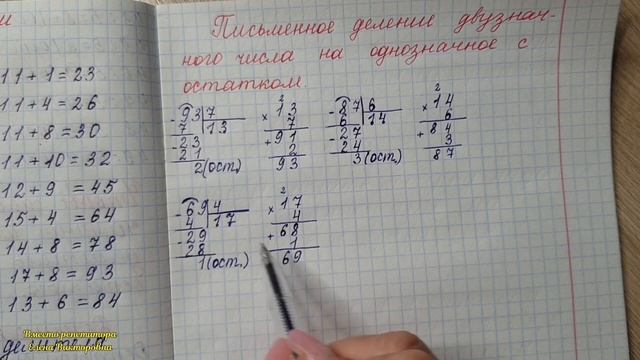 и
11+1=23
11+4=26
11+8=30
11+10=32
12+9=45
15+4=64
14+8=78
17+8=93
13+6=84
Письменное деление двузнач-
ного числа на однозначное с
остатком.
-93 7
7 13
-23
21
2(ост.)
2
× 13
7
+ 91
2
93
-87 6
6 14
-27
24
3(ост.)
2
× 14
6
+ 84
3
87
-69 4
4 17
-29
28
1(ост.)
2
× 17
4
+ 68
1
69
Вместо репетитора
Елена Викторовна